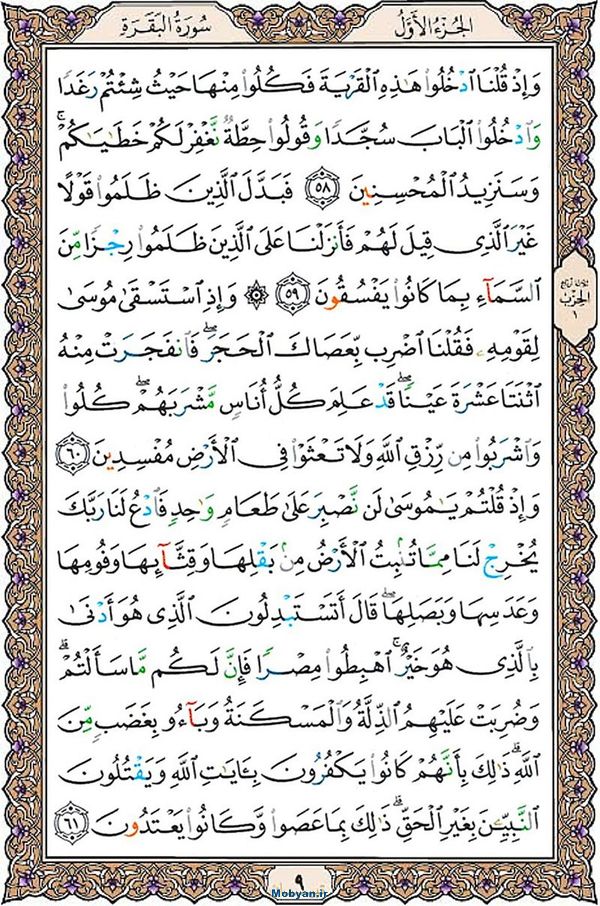 الجزء الأول
سورة البقرة
وَإِذْ قُلْنَا ادْخُلُوا هَٰذِهِ الْقَرْيَةَ فَكُلُوا مِنْهَا حَيْثُ شِئْتُمْ رَغَدًا
وَادْخُلُوا الْبَابَ سُجَّدًا وَقُولُوا حِطَّةٌ نَّغْفِرْ لَكُمْ خَطَايَاكُمْ ۚ
وَسَنَزِيدُ الْمُحْسِنِينَ ﴿٥٨﴾ فَبَدَّلَ الَّذِينَ ظَلَمُوا قَوْلًا
غَيْرَ الَّذِي قِيلَ لَهُمْ فَأَنزَلْنَا عَلَى الَّذِينَ ظَلَمُوا رِجْزًا مِّنَ
السَّمَاءِ بِمَا كَانُوا يَفْسُقُونَ ﴿٥٩﴾ ۞ وَإِذِ اسْتَسْقَىٰ مُوسَىٰ
لِقَوْمِهِ فَقُلْنَا اضْرِب بِّعَصَاكَ الْحَجَرَ ۖ فَانفَجَرَتْ مِنْهُ
اثْنَتَا عَشْرَةَ عَيْنًا ۖ قَدْ عَلِمَ كُلُّ أُنَاسٍ مَّشْرَبَهُمْ ۖ كُلُوا
وَاشْرَبُوا مِن رِّزْقِ اللَّهِ وَلَا تَعْثَوْا فِي الْأَرْضِ مُفْسِدِينَ ﴿٦٠﴾
وَإِذْ قُلْتُمْ يَا مُوسَىٰ لَن نَّصْبِرَ عَلَىٰ طَعَامٍ وَاحِدٍ فَادْعُ لَنَا رَبَّكَ
يُخْرِجْ لَنَا مِمَّا تُنبِتُ الْأَرْضُ مِن بَقْلِهَا وَقِثَّائِهَا وَفُومِهَا
وَعَدَسِهَا وَبَصَلِهَا ۖ قَالَ أَتَسْتَبْدِلُونَ الَّذِي هُوَ أَدْنَىٰ
بِالَّذِي هُوَ خَيْرٌ ۚ اهْبِطُوا مِصْرًا فَإِنَّ لَكُم مَّا سَأَلْتُمْ ۗ
وَضُرِبَتْ عَلَيْهِمُ الذِّلَّةُ وَالْمَسْكَنَةُ وَبَاءُوا بِغَضَبٍ مِّنَ
اللَّهِ ۗ ذَٰلِكَ بِأَنَّهُمْ كَانُوا يَكْفُرُونَ بِآيَاتِ اللَّهِ وَيَقْتُلُونَ
النَّبِيِّينَ بِغَيْرِ الْحَقِّ ۗ ذَٰلِكَ بِمَا عَصَوا وَّكَانُوا يَعْتَدُونَ ﴿٦١﴾
الحزب
١
٩
Mobyan.ir